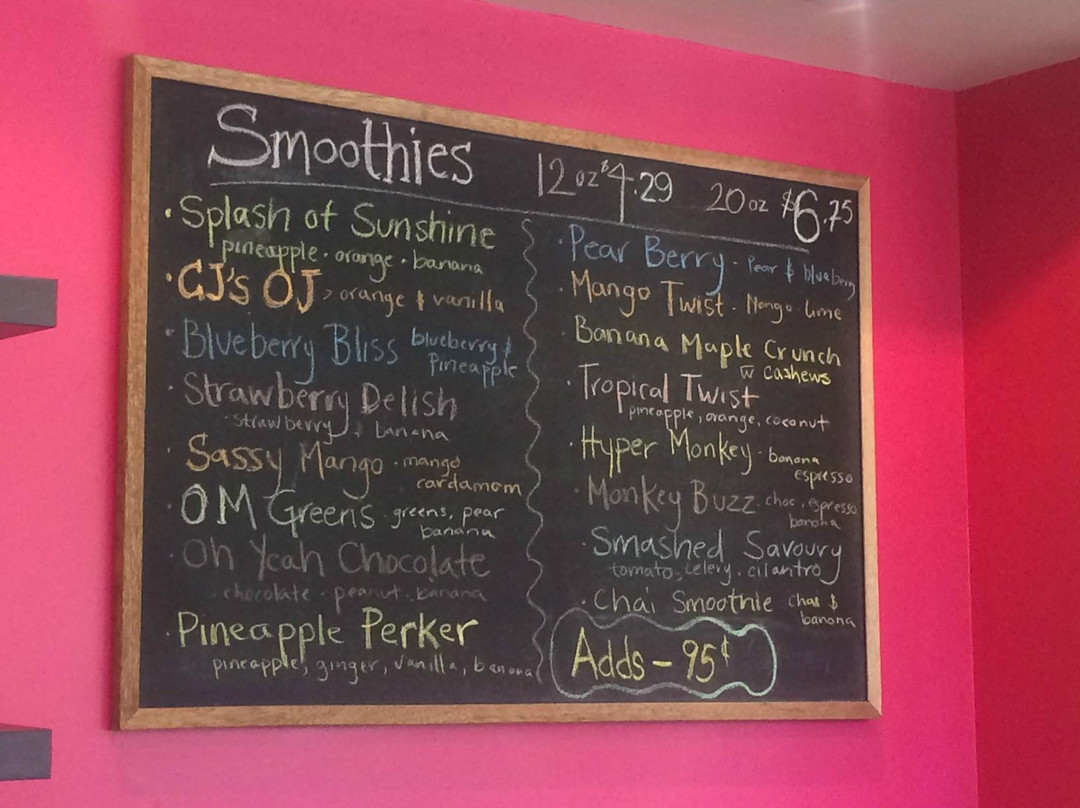 Smoothies 12 oz $4.29 20 oz $6.75
• Splash of Sunshine
pineapple • orange • banana
• CJ's OJ > orange & vanilla
• Blueberry Bliss blueberry &
Pineapple
• Strawberry Delish
• Strawberry & banana
• Sassy Mango • mango
cardamom
• OM Greens • greens, pear
banana
• Oh Yeah Chocolate
• chocolate • peanut • banana
• Pineapple Perker
pineapple, ginger, vanilla, banana
• Pear Berry • Pear & blueberry
• Mango Twist • Mango lime
• Banana Maple Crunch
w cashews
• Tropical Twist
pineapple, orange, coconut
• Hyper Monkey - banana
espresso
• Monkey Buzz choc, espresso
banana
• Smashed Savoury
tomato, celery • cilantro
• Chai Smoothie chai &
banana
Adds - 95¢